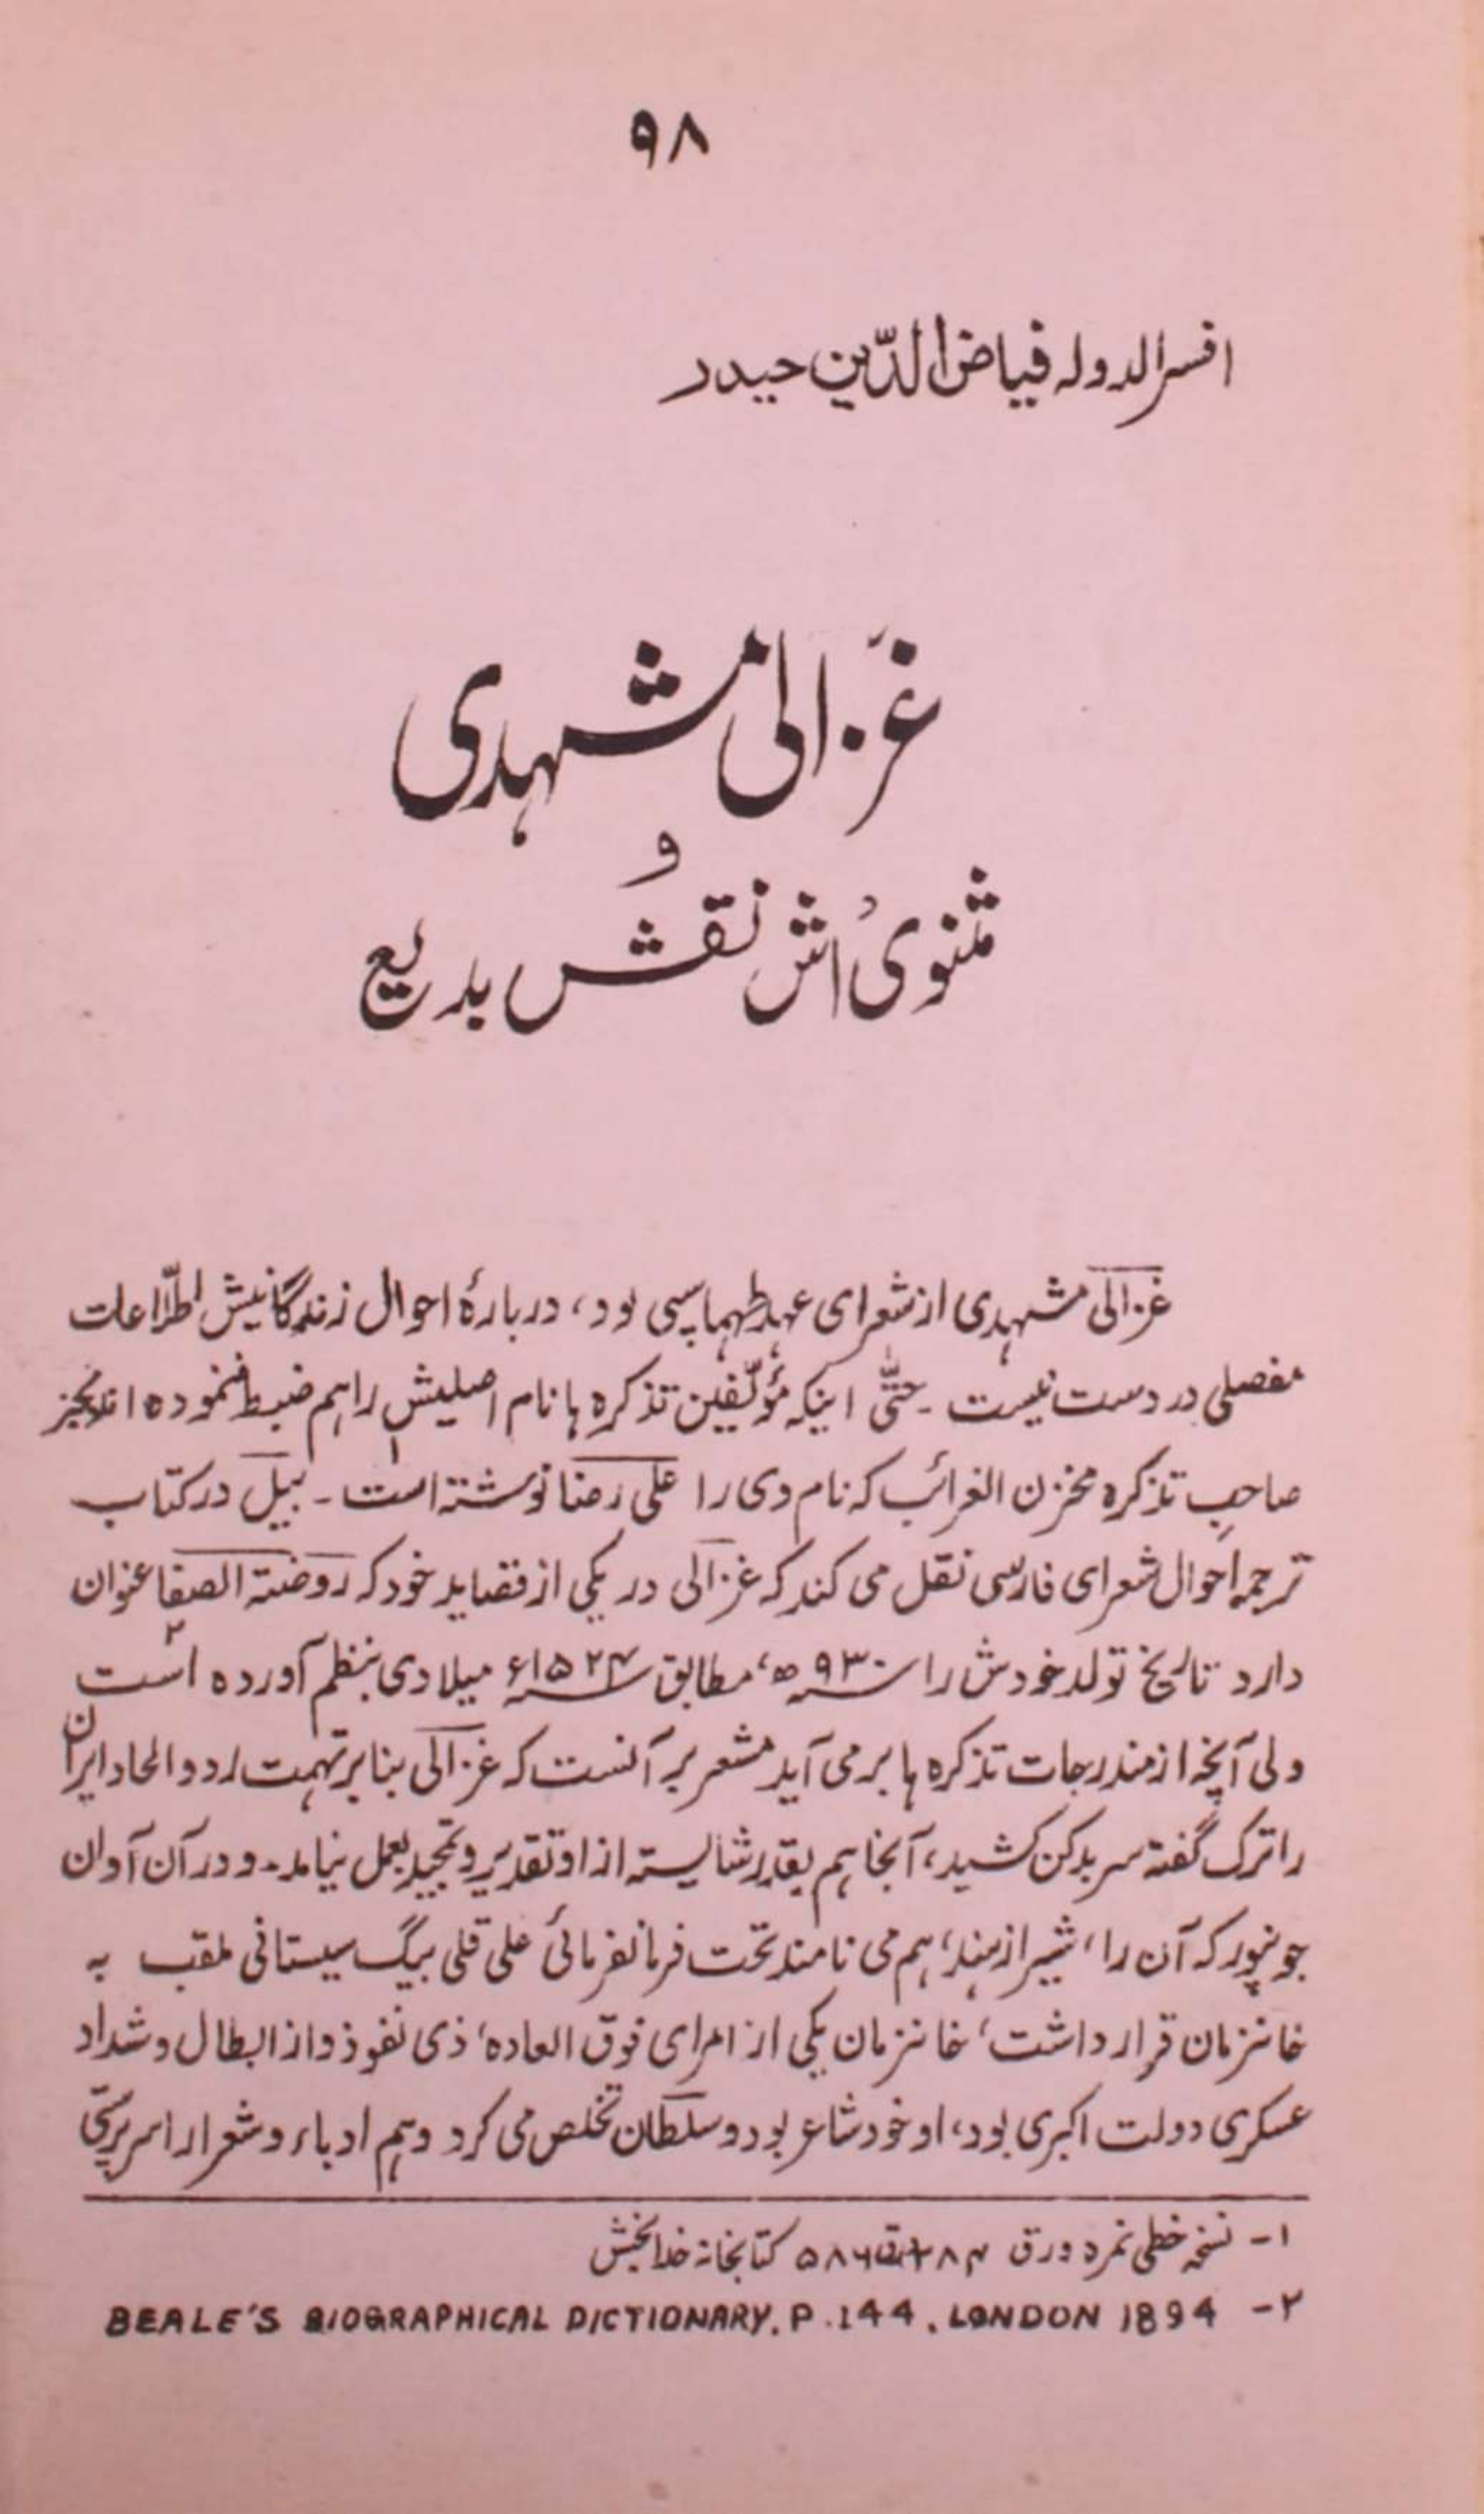 ۹۸
افسرالدوله فیاض الدّین حیدر
غزالی مشهدی
و
مثنویٔ اش نقش بدیع
غزالی مشهدی از شعرای عهد طهماسپی بود، دربارهٔ احوال زندگانیش اطّلاعات
مفصلی در دست نیست ـ حتّٰی اینکه مؤلّفین تذکره ها نام اصلیش را هم ضبط ننموده اند بجز
صاحبِ تذکره مخزن الغرائب که نام وی را علی رضا نوشته است ۱ ـ بیل در کتاب
ترجمه احوال شعرای فارسی نقل می کند که غزالی در یکی از قصاید خود که روضة الصفا عنوان
دارد تاریخ تولد خودش را سنه ۹۳۰ ه‍، مطابق سنه ۱۵۲۴ء میلادی بنظم آورده است ۲
ولی آنچه از مندرجات تذکره ها بر می آید مشعر بر آنست که غزالی بنا بر تهمت ارد و الحاد ایران
را ترک گفته سر بدکن کشید، آنجا هم بقدر شایسته از او تقدیر و تمجید بعمل نیامد ـ و در آن آوان
جونپور که آن را ، شیراز هند، هم می نامند تحت فرمانفرمائی علی قلی بیگ سیستانی ملقب به
خانزمان قرار داشت، خانزمان یکی از امرای فوق العاده، ذی نفوذ و از ابطال و شداد
عسکری دولت اکبری بود، او خود شاعر بود و سلطان تخلص می کرد و هم ادباء و شعرا را سرپرستی
۱ـ نسخه خطی نمره ورق کتابخانه خدابخش
۲ـ BEALE'S BIOGRAPHICAL DICTIONARY. P. 144. LONDON 1894